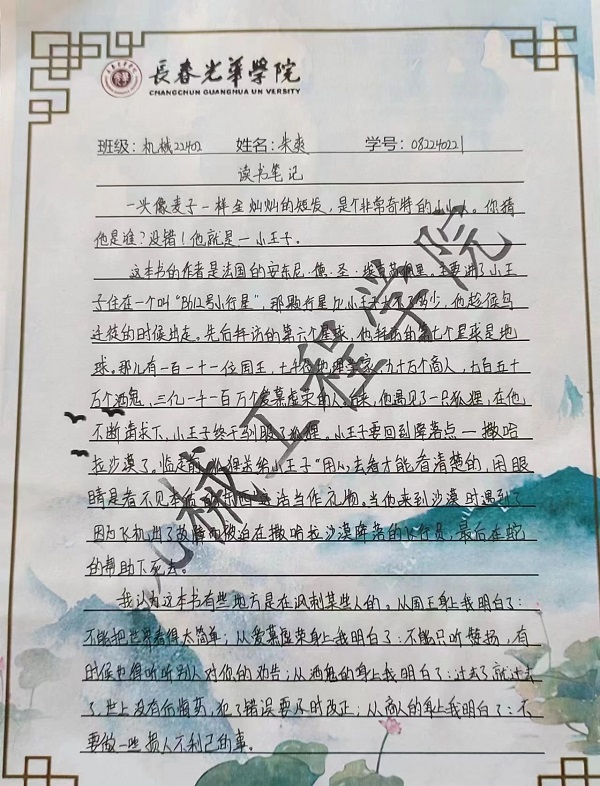 長春光華學院
CHANGCHUN GUANGHUA UN VERSITY
班级：机械22402 姓名：朱爽 学号：082240221
读书笔记
一头像麦子一样金灿灿的短发，是个非常奇特的小小人。你猜
他是谁？没错！他就是一小王子。
这本书的作者是法国的安东尼·德·圣·埃克苏佩里，主要讲了小王
子住在一个叫“B612号小行星”，那颗行星比小王子大不了多少，他趁候鸟
迁徒的时候出走。先后拜访的第六个星球，他拜访的第七个星球是地
球。那儿有一百一十一位国王，七千位地理学家，九十万个商人，七百五十
万个酒鬼，三亿一千一百万个爱慕虚荣的人。后来，他遇见了一只狐狸，在他
不断请求下，小王子终于驯服了狐狸。小王子要回到降落点一撒哈
拉沙漠了，临走前，狐狸送给小王子“用心去看才能看清楚的，用眼
睛是看不见本质的东西这话当作礼物。当他来到沙漠时遇到了
因为飞机出了故障而被迫在撒哈拉沙漠降落的飞行员，最后在蛇
的帮助下死去。
我认为这本书有些地方是在讽刺某些人的。从国王身上我明白了：
不能把世界看得太简单；从爱慕虚荣身上我明白了：不能只听赞扬，有
时候也得听听别人对你的劝告；从酒鬼的身上我明白了：过去了就过去
了，世上没有后悔药，犯了错误要及时改正；从商人的身上我明白了：不
要做一些损人不利己的事。
机械工程学院